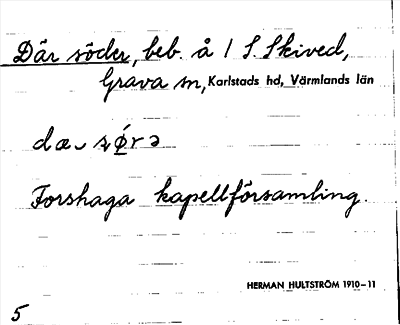 Där söder, beb. å 1 S. Skived,
Grava sn, Karlstads hd, Värmlands län
dæ sø̀rə
Forshaga kapellförsamling.
HERMAN HULTSTRÖM 1910–11
5